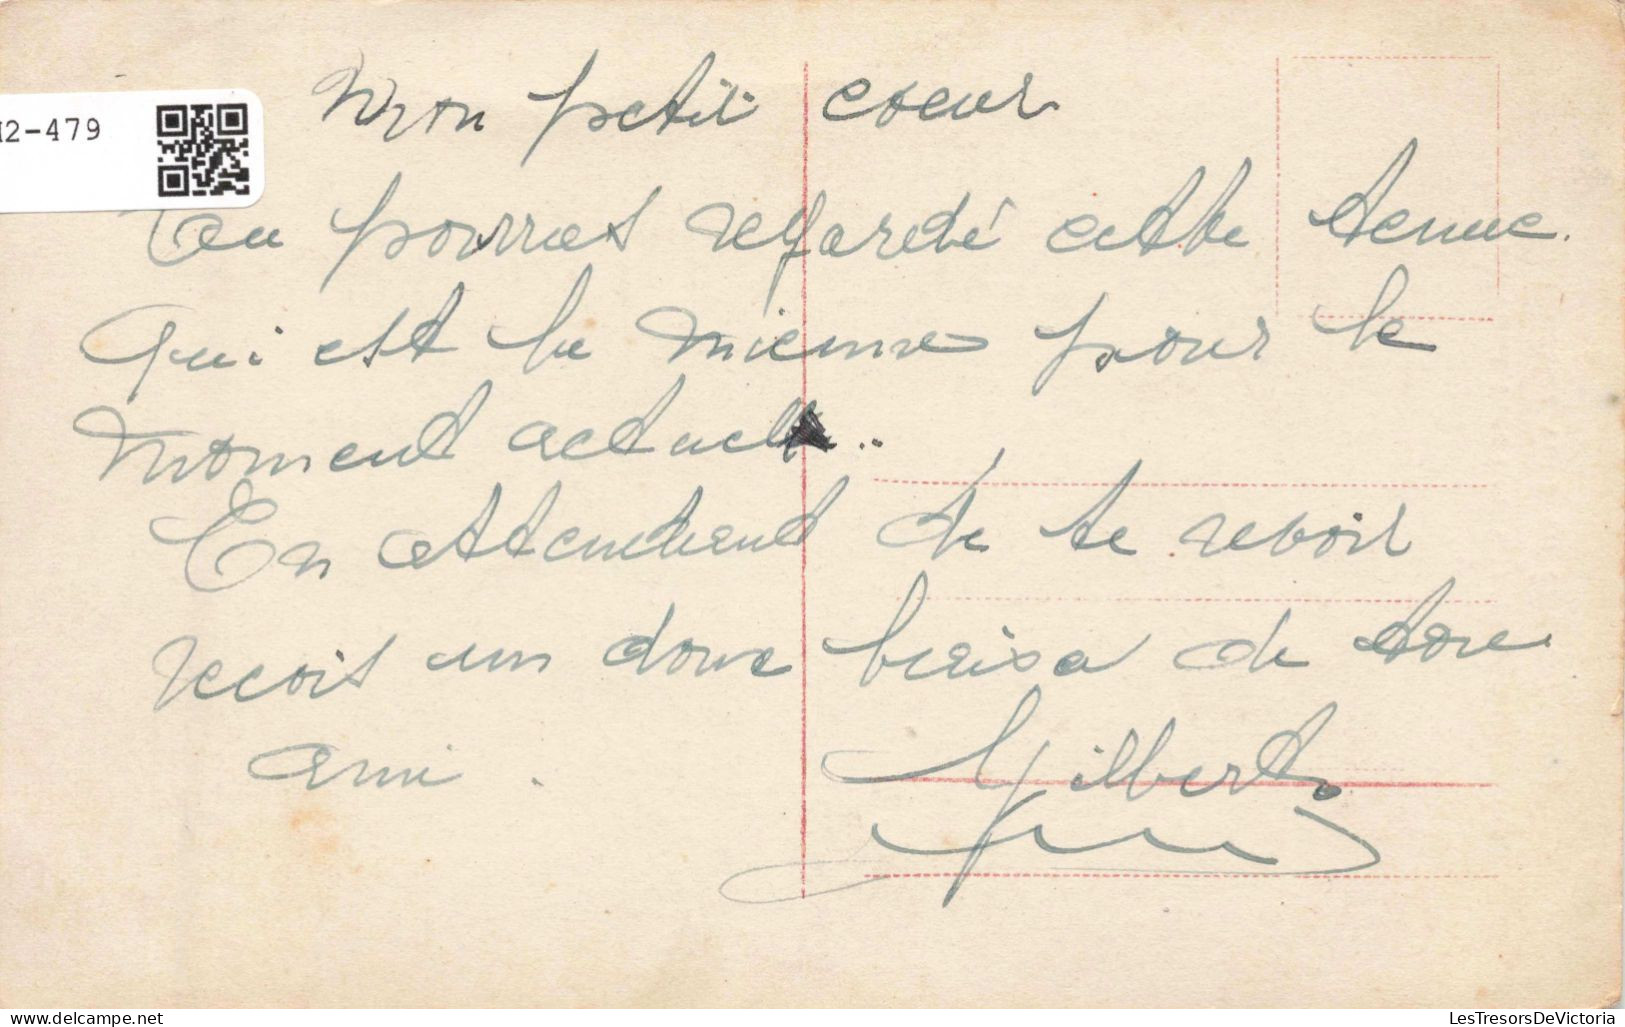 12-479
Mon petit coeur
Tu pourras regardé cette tenue.
Qui est la mienne pour le
moment actuell..
En attendent de te revoir
recois un doux baisé de ton
ami. Gilbert
LesTresorsDeVictoria
www.delcampe.net